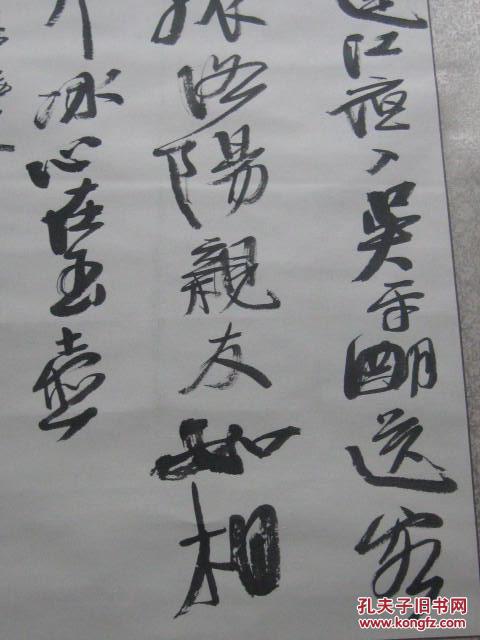 連江夜入吴平明送客
孤洛陽親友如相
片冰心在玉壺
孔夫子旧书网
www.kongfz.com